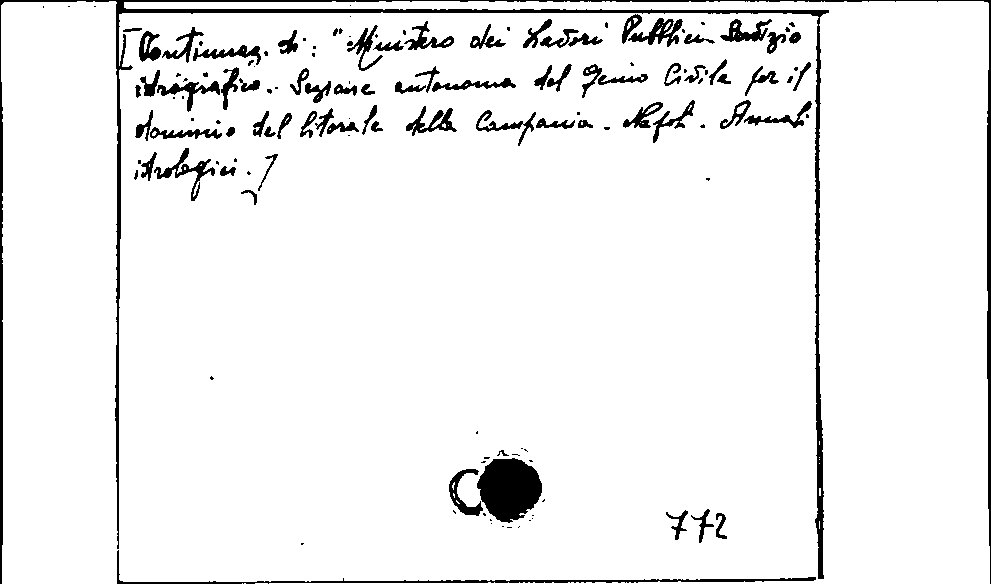 [Continuaz. di: "Ministero dei Lavori Pubblici - Servizio
idrografico. Sezione autonoma del Genio Civile per il
dominio del litorale della Campania. Napoli. Annali
idrologici.]
772